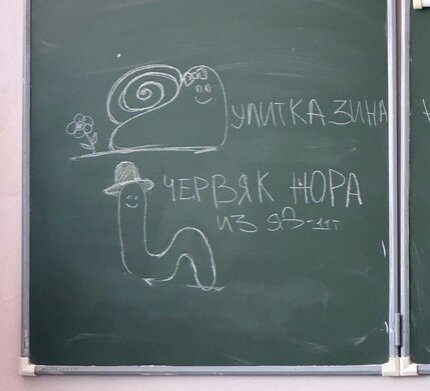 УЛИТКА ЗИНА
ЧЕРВЯК ЖОРА
ИЗ ЯВ-11т